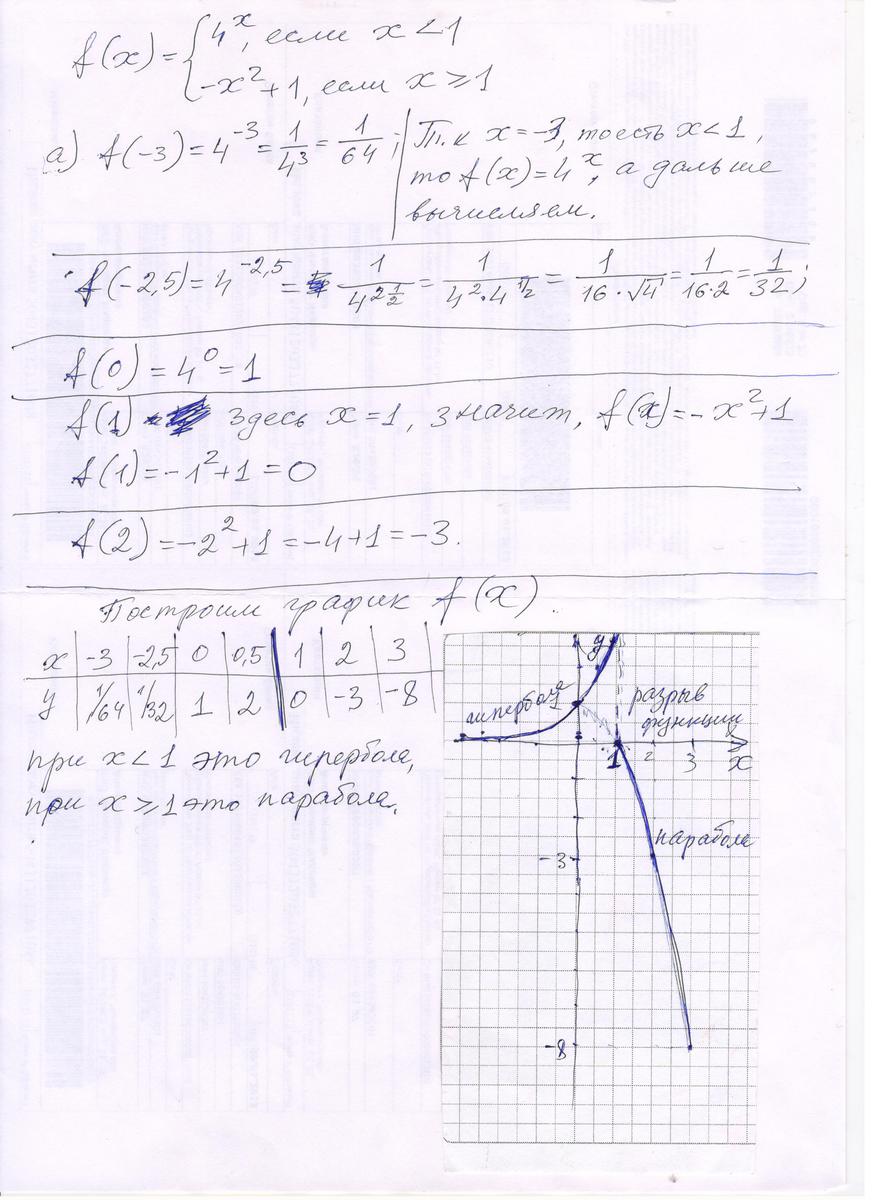 f(x) = { 4^x, если x < 1
-x² + 1, если x ≥ 1
а) f(-3) = 4^-3 = 1/4³ = 1/64; Т.к x = -3, то есть x < 1,
то f(x) = 4^x, а дальше
вычисляем.
f(-2,5) = 4^-2,5 = 1/4^2 1/2 = 1/4²·4^1/2 = 1/16·√4 = 1/16·2 = 1/32;
f(0) = 4⁰ = 1
f(1) Здесь x = 1, значит, f(x) = -x² + 1
f(1) = -1² + 1 = 0
f(2) = -2² + 1 = -4 + 1 = -3.
Построим график f(x).
x | -3 | -2,5 | 0 | 0,5 | 1 | 2 | 3
y | 1/64 | 1/32 | 1 | 2 | 0 | -3 | -8
при x < 1 это гипербола,
при x ≥ 1 это парабола.
y
гипербола
1
разрыв
функции
1 2 3 x
парабола
-3
-8